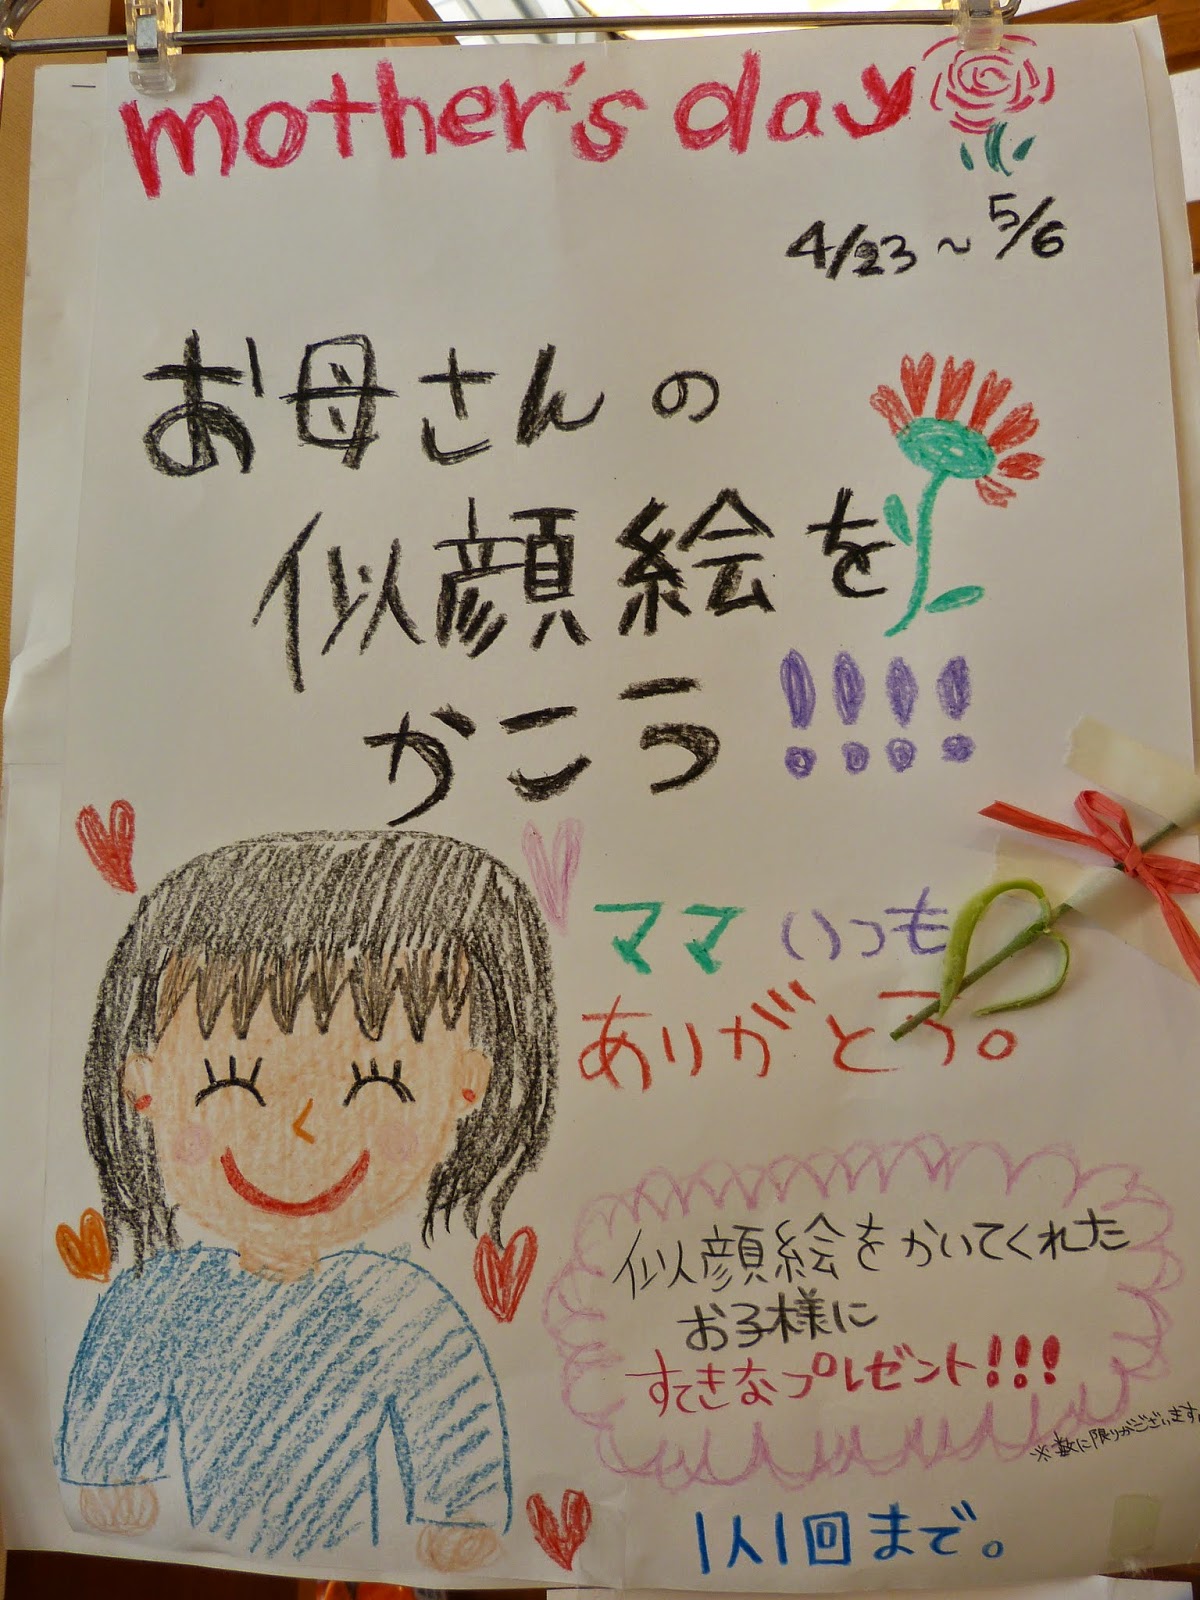 mother's day
4/23～5/6
お母さんの
似顔絵を
かこう!!!!
ママいつも
ありがとう。
似顔絵をかいてくれた
お子様に
すてきなプレゼント!!!
※数に限りがございます。
1人1回まで。